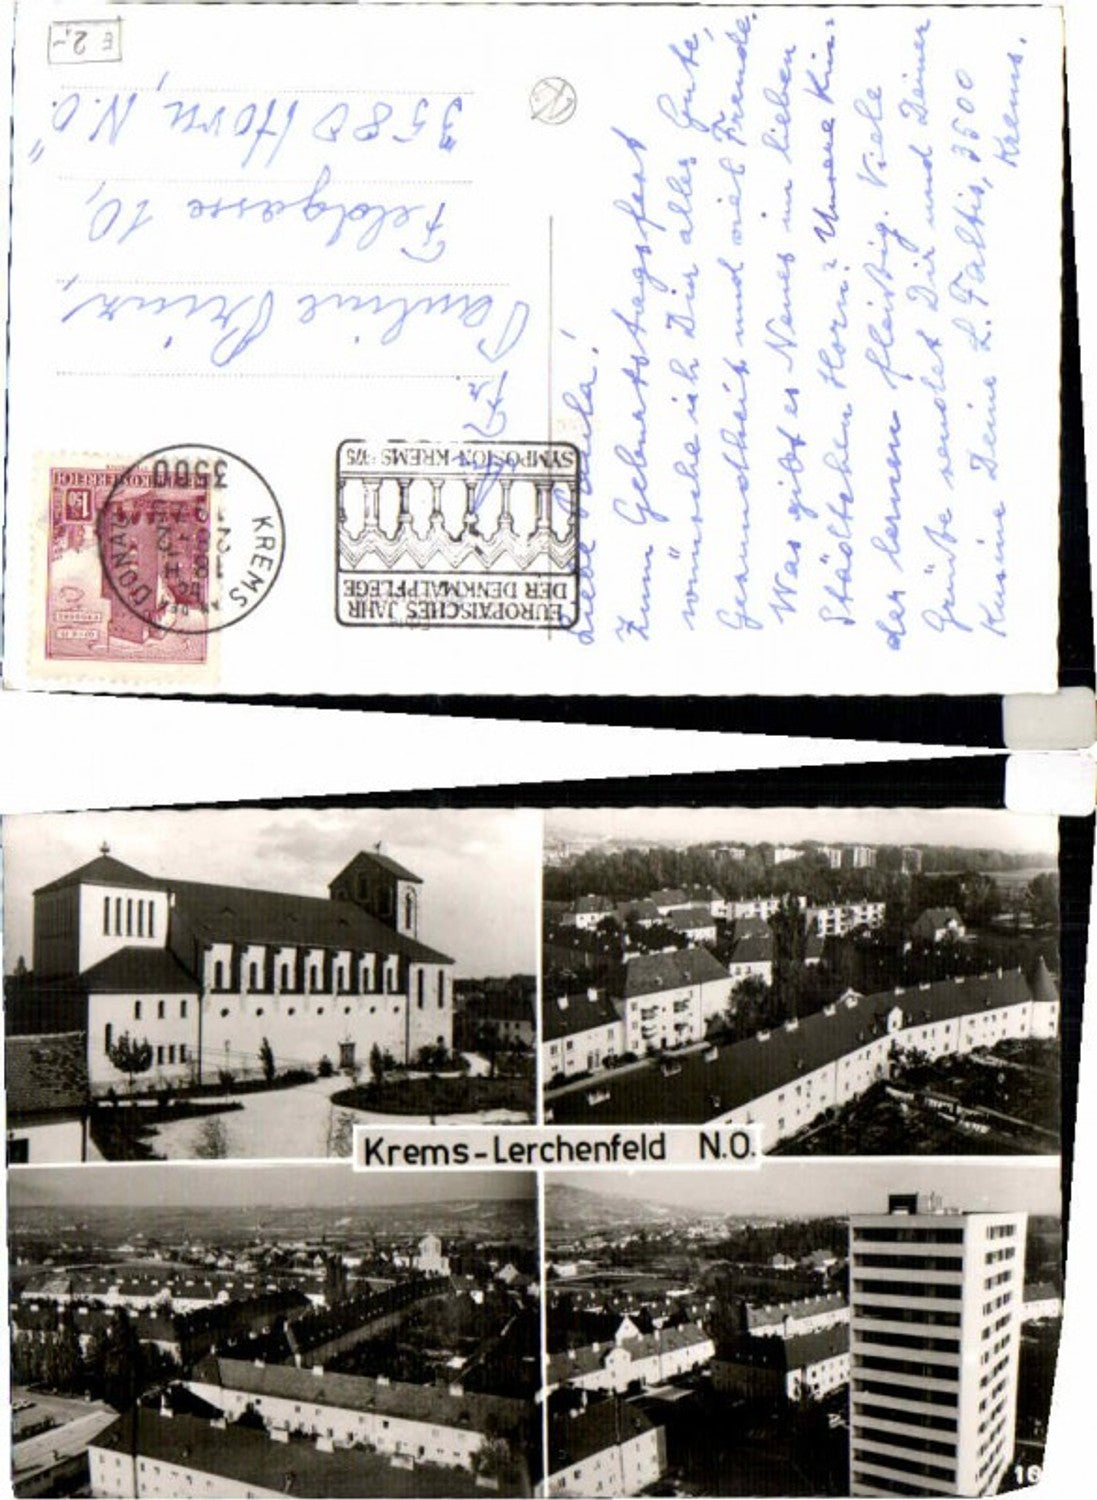 E 2,-
Liebe Paula!
Zum Geburtstagsfest
wünsche ich Dir alles Gute,
Gesundheit und viel Freude.
Was gibt es Neues im lieben
Städtchen Horn? Unsere Kin-
der lernen fleißig. Viele
Grüße sendet Dir und Deiner
Deine L. Faltis, 3500
Krems.
Pauline Prinz,
Feldgasse 10,
3580 Horn, N.Ö.
EUROPÄISCHES JAHR
DER DENKMALPFLEGE
SYMPOSION-KREMS '75
KREMS AN DER DONAU
3500
REPUBLIK ÖSTERREICH
1.50
Krems-Lerchenfeld N.Ö.